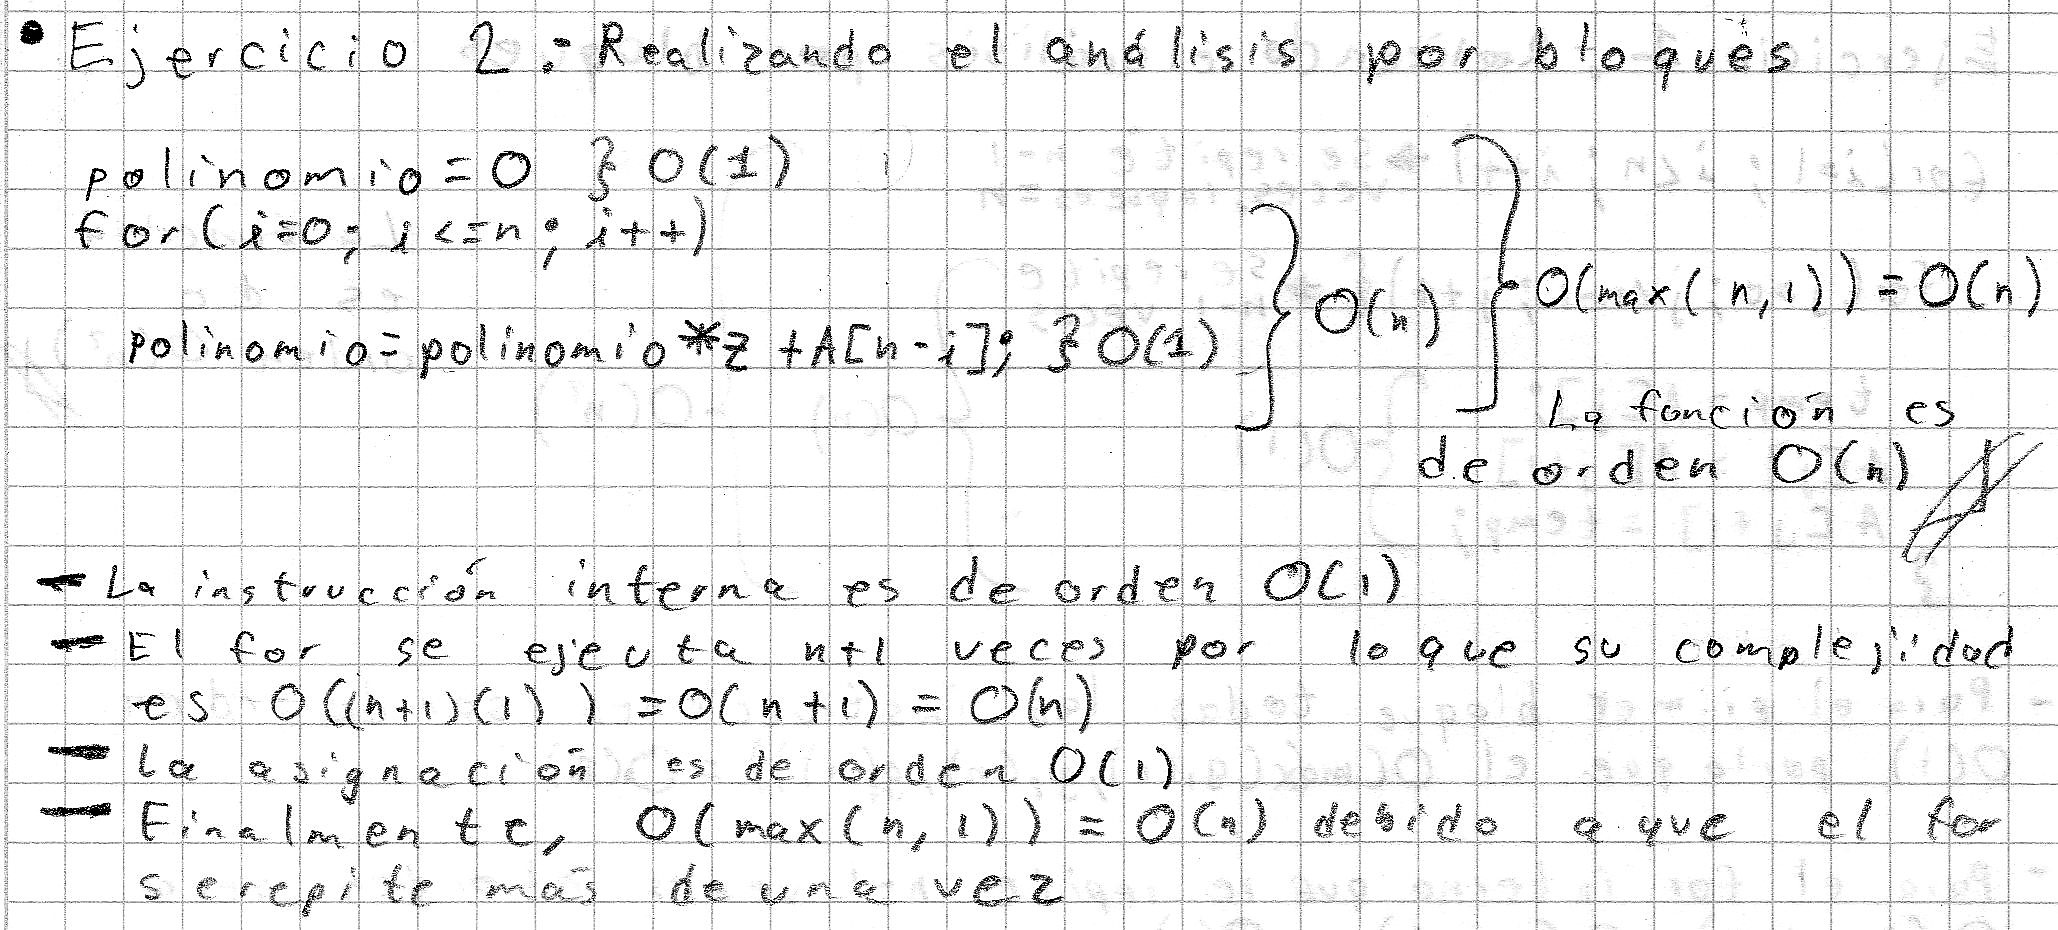 • Ejercicio 2: Realizando el análisis por bloques
polinomio = 0 } O(1)
for(i=0; i<=n; i++)
polinomio = polinomio*z + A[n-i]; } O(1) } O(n) } O(max(n,1)) = O(n)
La función es
de orden O(n)
- La instrucción interna es de orden O(1)
- El for se ejecuta n+1 veces por lo que su complejidad
es O((n+1)(1)) = O(n+1) = O(n)
- La asignación es de orden O(1)
- Finalmente, O(max(n,1)) = O(n) debido a que el for
se repite más de una vez